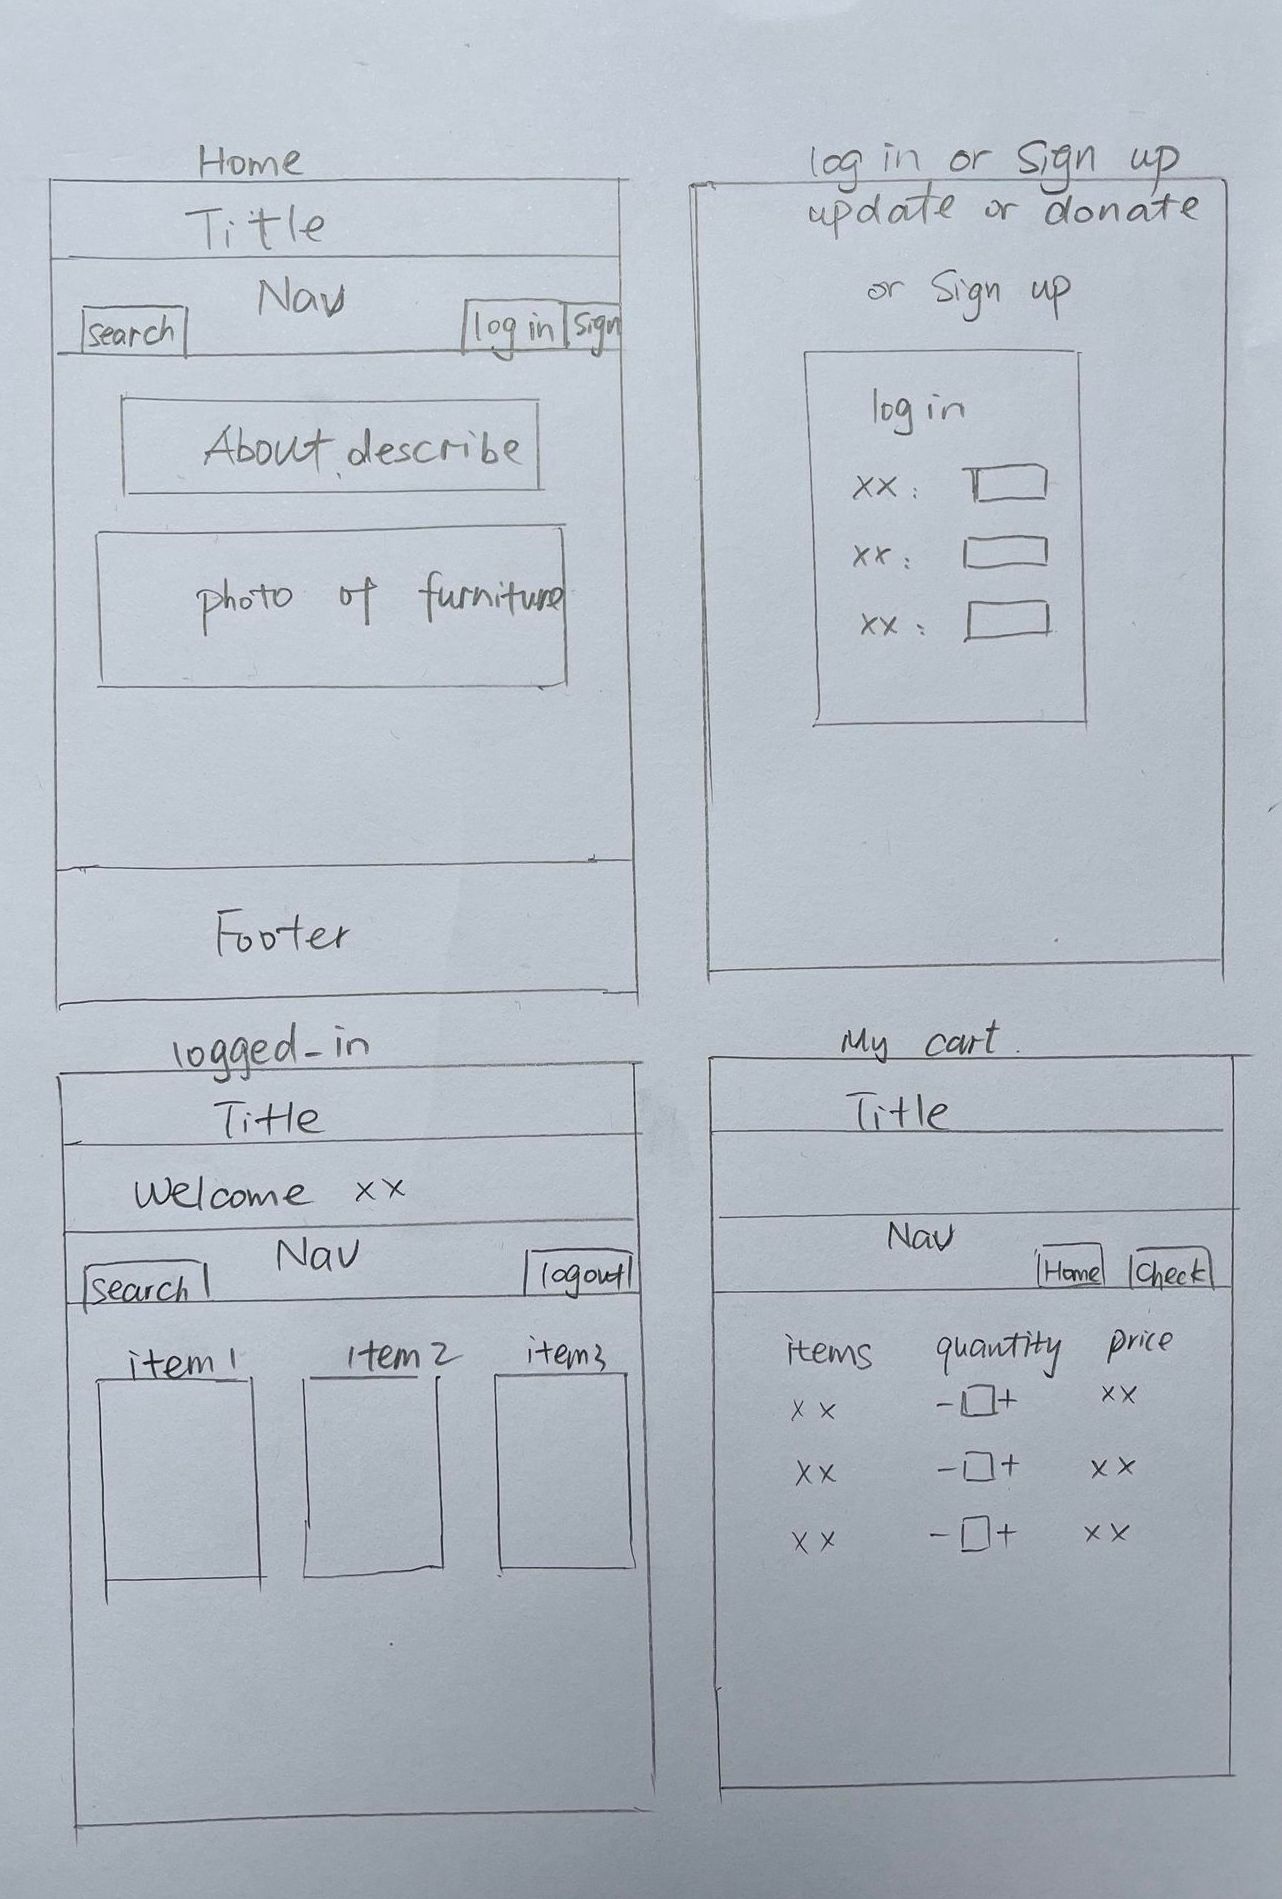 Home
Title
Nav
search
log in
sign
About describe
photo of furniture
Footer
log in or Sign up
update or donate
or Sign up
log in
xx :
xx :
xx :
logged_in
Title
Welcome xx
Nav
search
logout
item 1
item 2
item3
My cart.
Title
Nav
Home
Check
items quantity price
xx - + xx
xx - + xx
xx - + xx